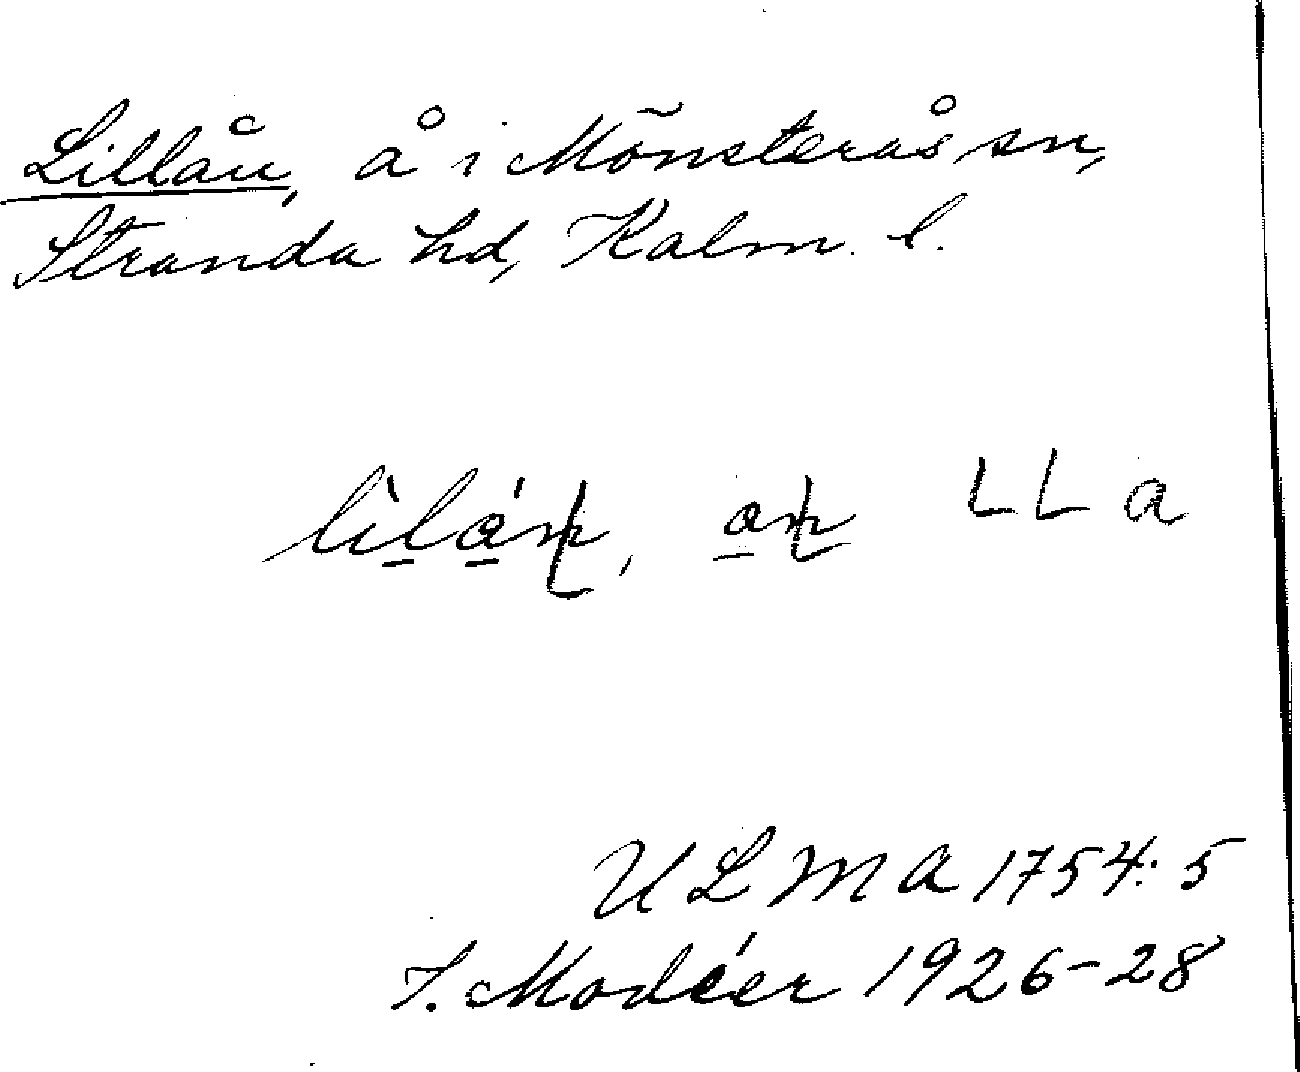 Lillån, å i Mönsterås sn,
Stranda hd, Kalm. l.
ULMA 1754:5
I. Modéer 1926-28